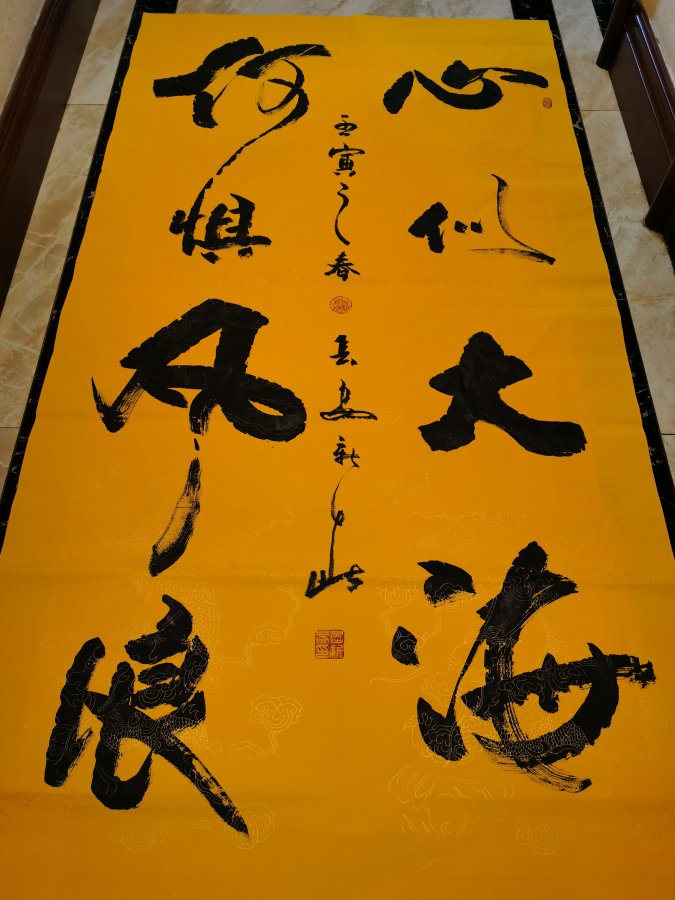 心似大海
何惧风浪
壬寅之春
安新